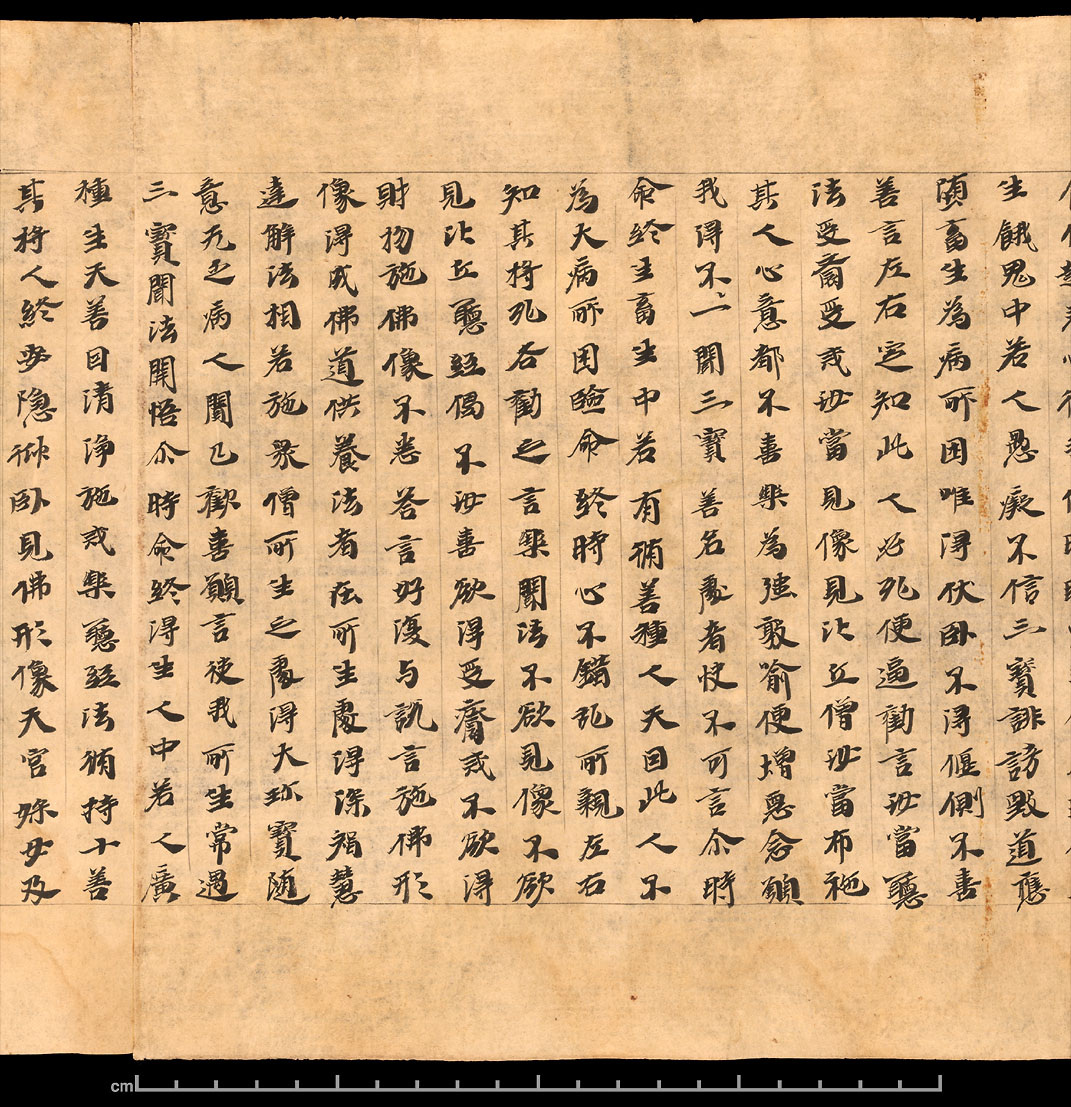 生餓鬼中若人愚癡不信三寶誹謗毀道應
墮畜生為病所困唯得伏卧不得偃側不喜
善言左右定知此人必死便逼勸言汝當聽
法受齋受戒汝當見像見比丘僧汝當布施
其人心意都不喜樂為強敦喻便增惡念願
我得不二聞三寶善名處者快不可言尒時
命終生畜生中若有種善種人天因此人不
為大病所困臨命終時心不錯乱所親左右
知其將死各勸之言樂聞法不欲見像不欲
見比丘聽經偈不汝善欲得受齋戒不欲得
財物施佛像不悉答言好復与說言施佛形
像得成佛道供養法者在所生處得深智慧
達解法相若施衆僧所生之處得大珎寶随
意无乏病人聞已歡喜願言使我所生常遇
三寶聞法開悟尒時命終得生人中若人廣
種生天善因清淨施戒樂聽經法脩持十善
其將人終安隱仰卧見佛形像天宮婇女及